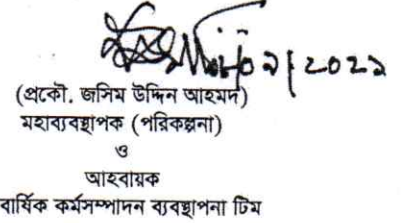 (প্রকৌ. জসিম উদ্দিন আহমদ)
মহাব্যবস্থাপক (পরিকল্পনা)
ও
আহবায়ক
বার্ষিক কর্মসম্পাদন ব্যবস্থাপনা টিম